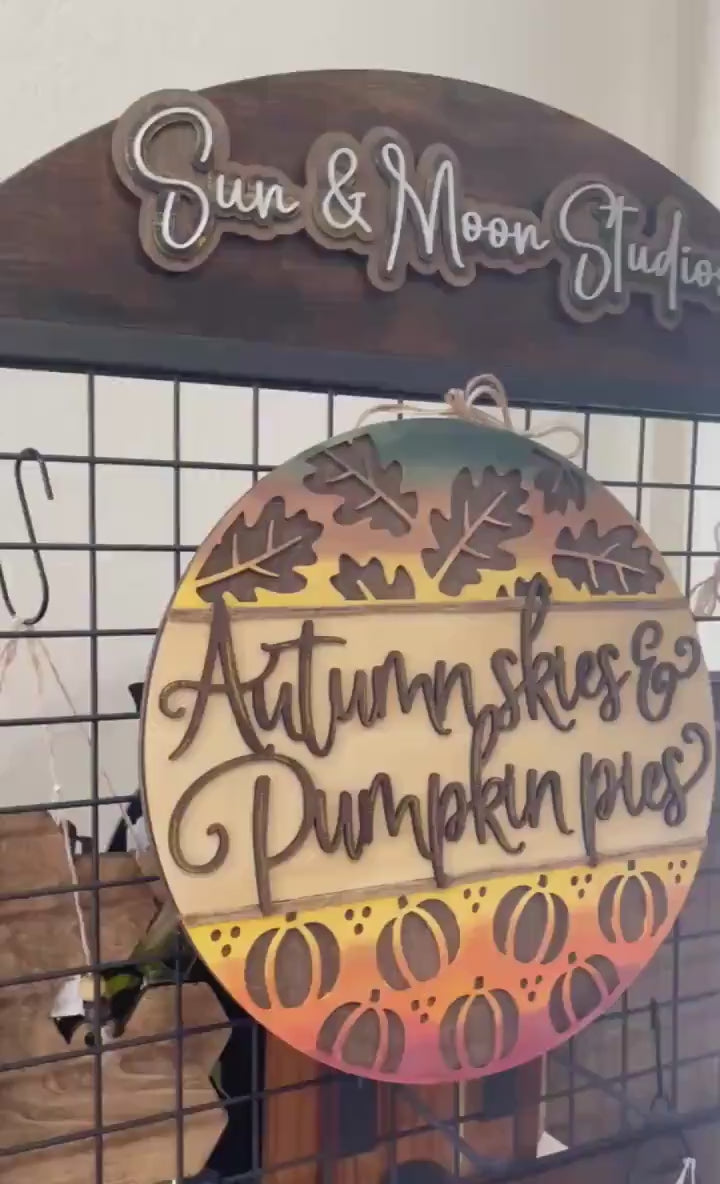 Sun & Moon Studios
Autumn skies &
Pumpkin pies